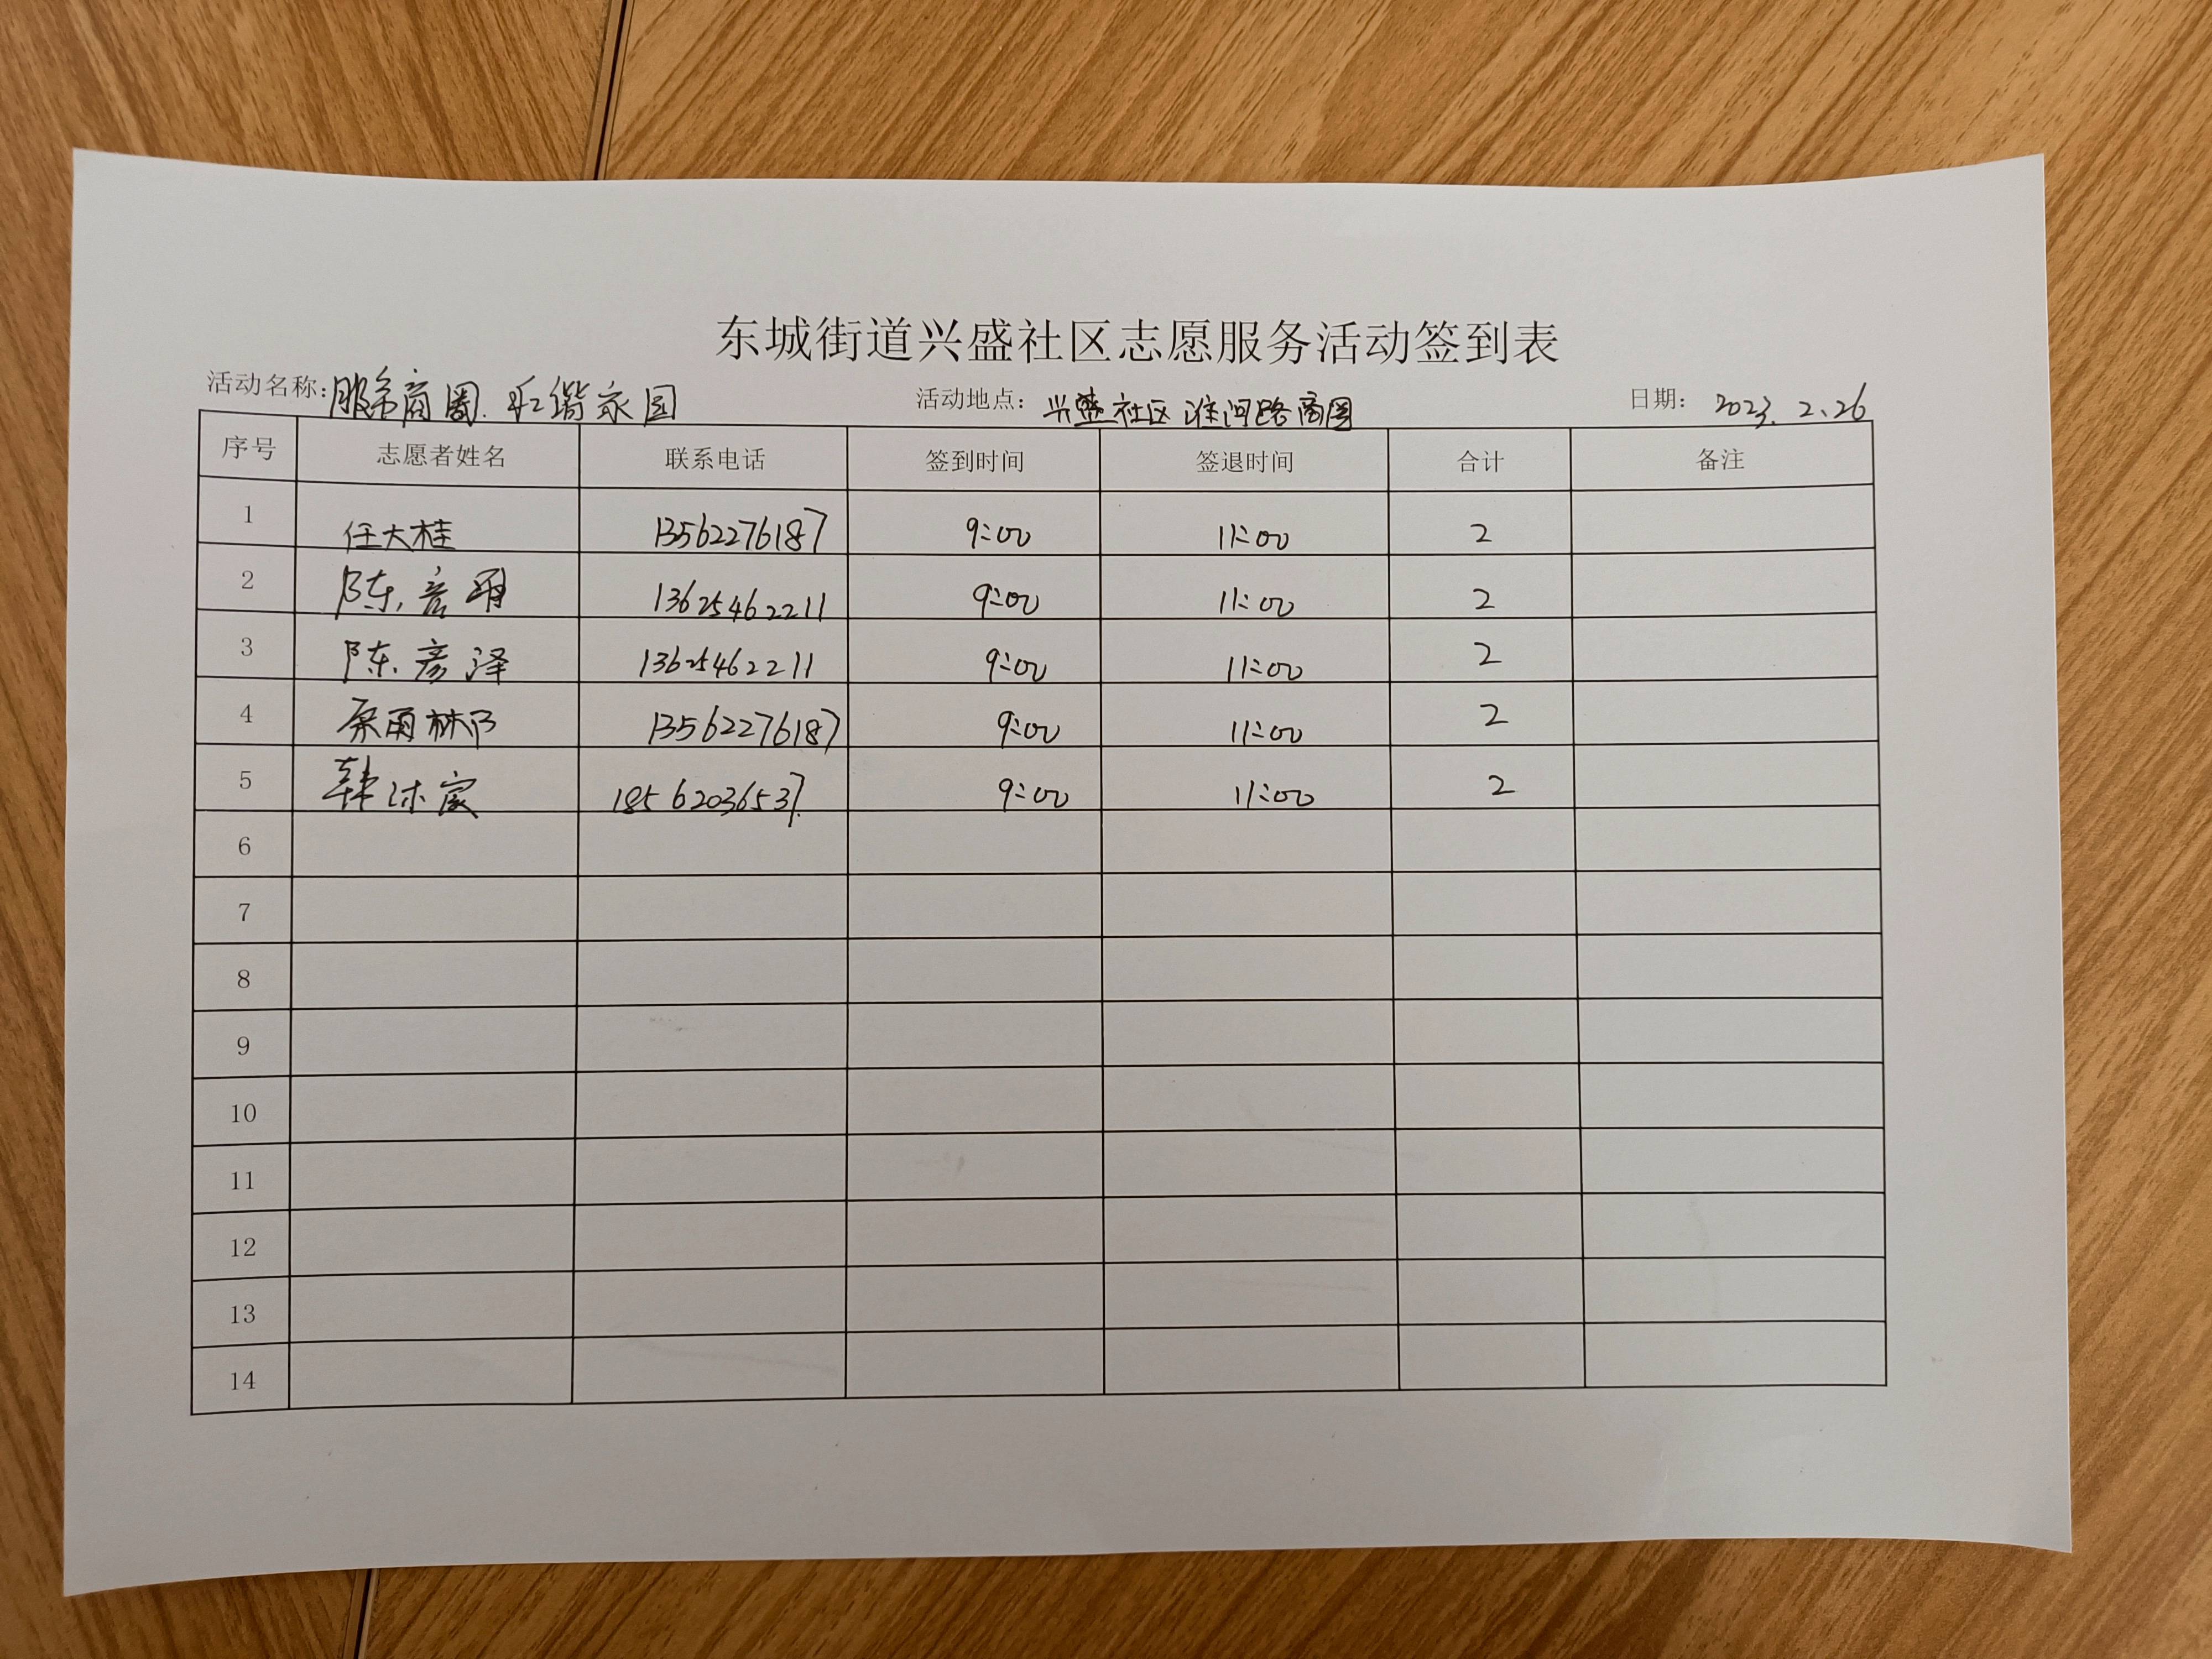 东城街道兴盛社区志愿服务活动签到表
活动名称: 服务商圈.和谐家园 活动地点: 兴盛社区淮河路商圈 日期: 2023.2.26
序号 志愿者姓名 联系电话 签到时间 签退时间 合计 备注
1 任大桂 13562276187 9:00 11:00 2
2 陈彦 13625462211 9:00 11:00 2
3 陈彦泽 13625462211 9:00 11:00 2
4 雨林 13562276187 9:00 11:00 2
5 韩沐宸 18562036537 9:00 11:00 2
6
7
8
9
10
11
12
13
14